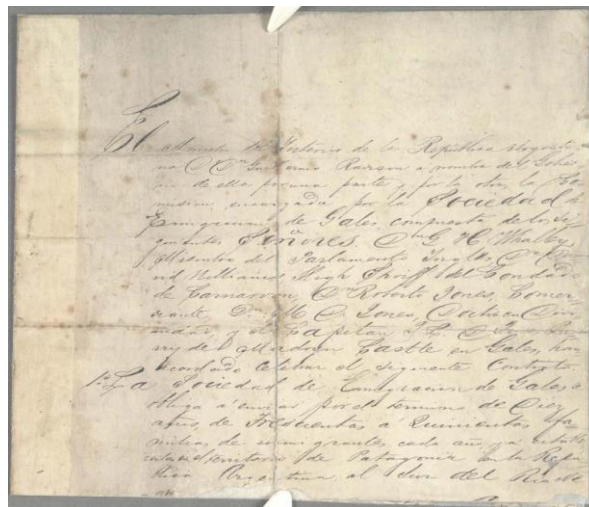 El Ministro del Interior de la República Argenti-
na D. Dn Guillermo Rawson a nombre del Gobier-
no de ella por una parte y por la otra la Co-
mision encargada por la Sociedad de
Emigracion de Gales compuesta de los Si-
guientes Señores Dn G H Whalley
Miembro del Parlamento Ingles Dn
Williams High Sheriff del Condado
de Carnarvon, Dn Roberto Jones, Comer-
ciante Dn M D Jones, Doctor en Divi-
nidad y el Capitan
de Madryn Castle en Gales, han
acordado celebrar el siguiente Contrato
1a La Sociedad de Emigracion de Gales se
obliga á enviar por el termino de Diez
años, de Trescientas a Quinientas fa-
milias de emigrantes cada año, pa
en el territorio de Patagonia en la Repu-
blica Argentina, al Sur del Rio